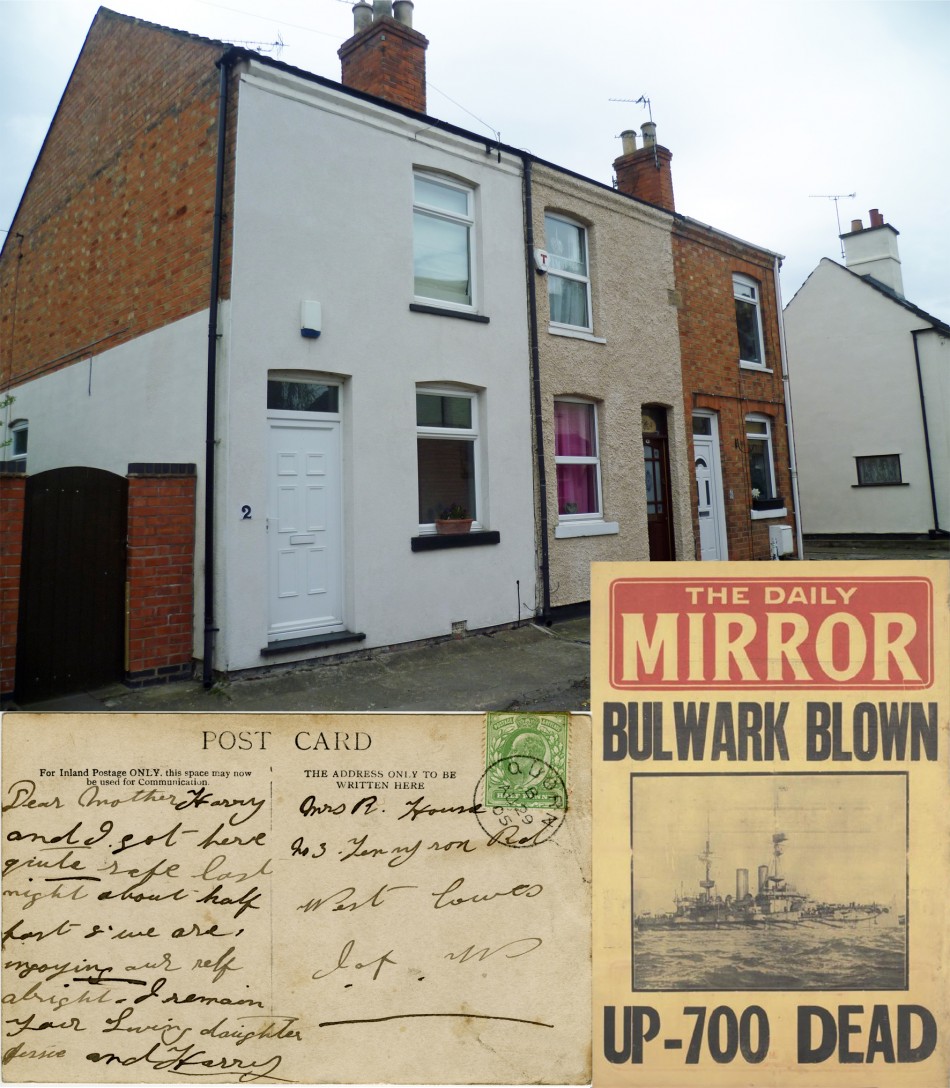 2
T
POST CARD
For Inland Postage ONLY, this space may now
be used for Communication.
THE ADDRESS ONLY TO BE
WRITTEN HERE
Dear Mother Harry
and I got here
quite safe last
night about half
past 8 we are
injoying our self
alright. I remain
your Loving daughter
Jessie and Harry
Mrs R. House
No 3 Tennyson Rd
West Cowes
I. of. W
HALFPENNY
QUORN
AU 29
05
THE DAILY
MIRROR
BULWARK BLOWN
UP-700 DEAD